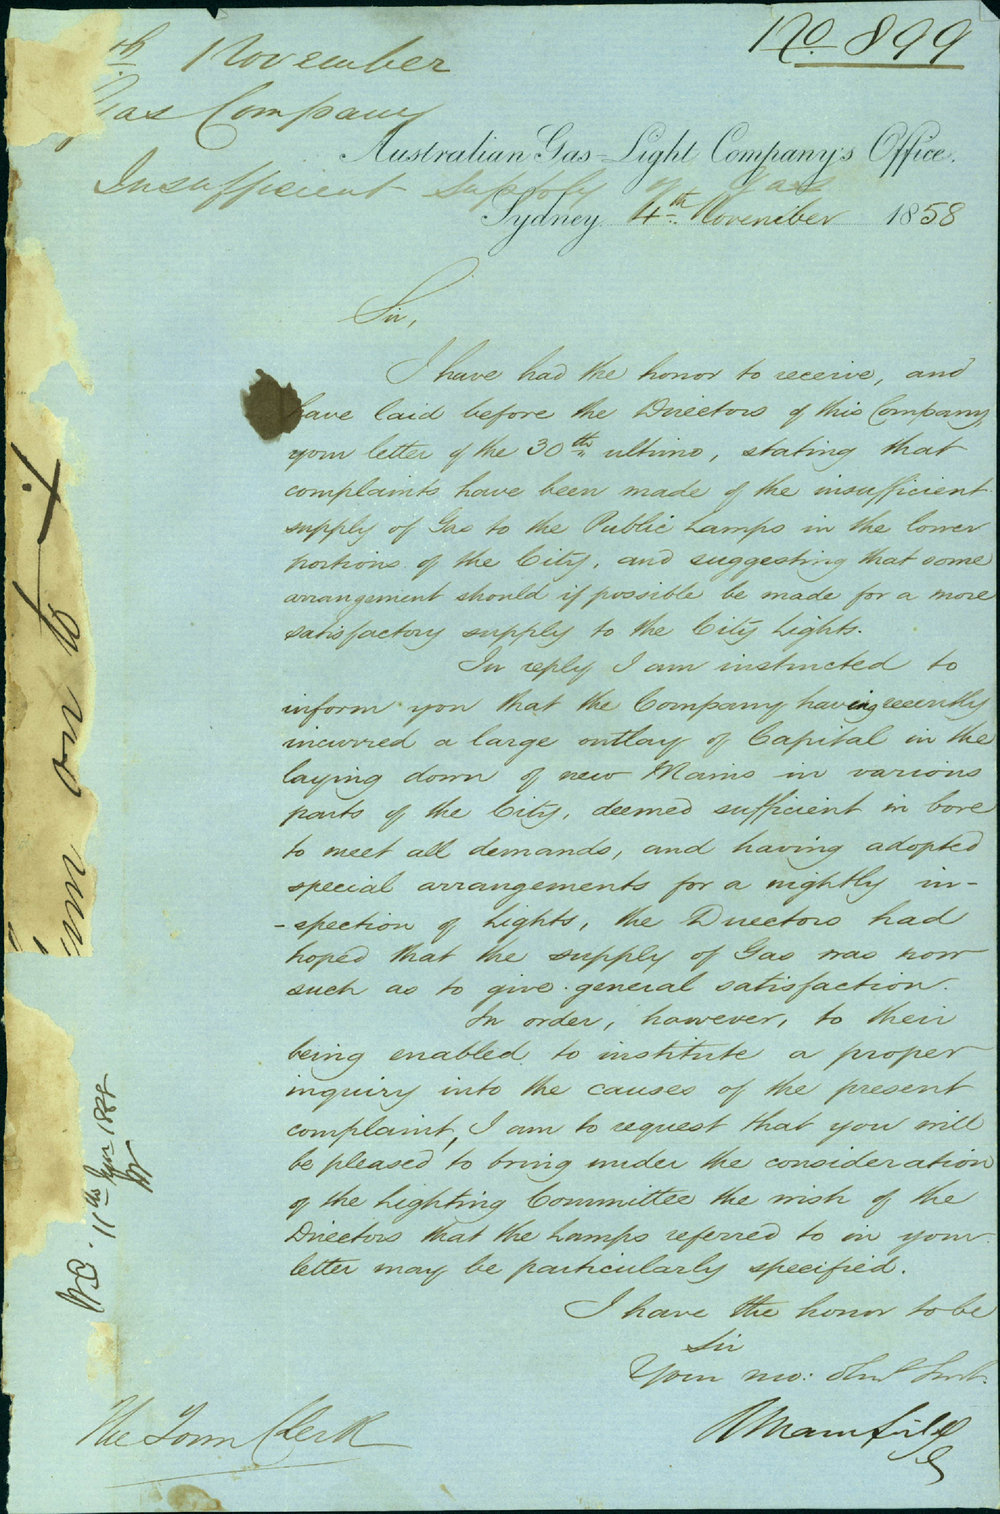 No 899
th November
Gas Company
Insufficient Supply of Gas
Australian Gas-Light Company's Office.
Sydney 4th November 1858
Sir,
I have had the honor to receive, and
have laid before the Directors of this Company,
your letter of the 30th ultimo, stating that
complaints have been made of the insufficient
supply of Gas to the Public Lamps in the lower
portions of the City, and suggesting that some
arrangement should if possible be made for a more
satisfactory supply to the City Lights.
In reply I am instructed to
inform you that the Company having recently
incurred a large outlay of Capital in the
laying down of new Mains in various
parts of the City, deemed sufficient in bore
to meet all demands, and having adopted
special arrangements for a nightly in-
-spection of Lights, the Directors had
hoped that the supply of Gas was now
such as to give general satisfaction.
In order, however, to their
being enabled to institute a proper
inquiry into the causes of the present
complaint, I am to request that you will
be pleased to bring under the consideration
of the Lighting Committee the wish of the
Directors that the Lamps referred to in your
letter may be particularly specified.
I have the honor to be
Sir
Your mo: Obt Servt.
The Town Clerk
on it
11th